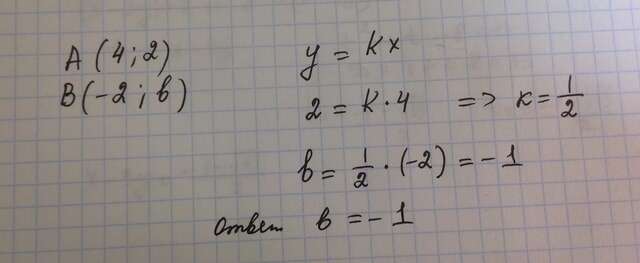 A (4; 2)
B (-2; b)
y = kx
2 = k · 4 => k = 1/2
b = 1/2 · (-2) = -1
ответ b = -1